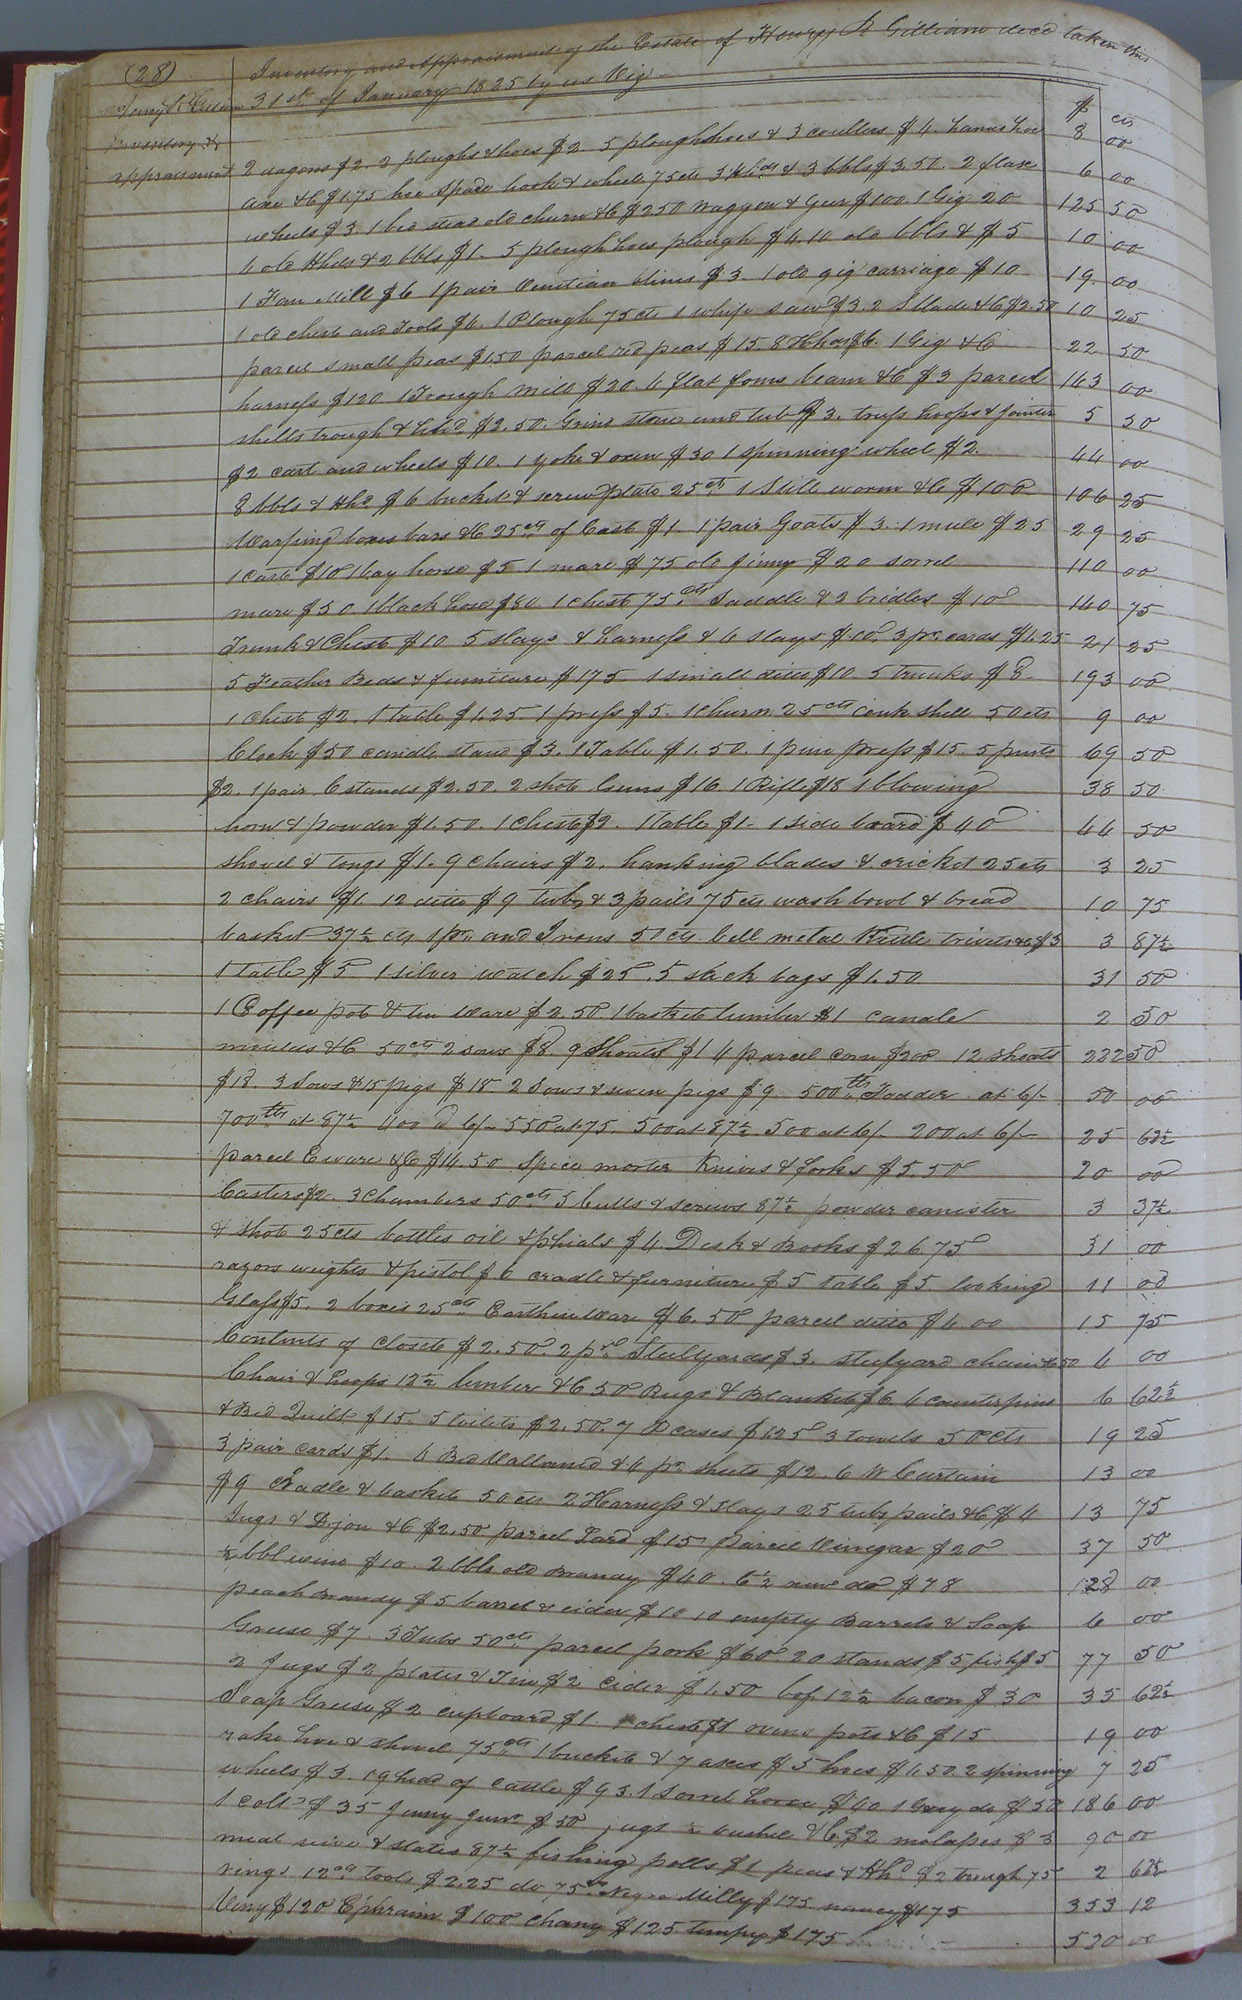 (28)
Inventory and Appraisment of the Estate of Henry Gilliam decd taken this
31st of January 1825 by us Viz
Inventory &
appraisment
$ cts
2 wagons $2. 2 ploughs & hoes $2. 5 ploughshoes & 3 coulters $4. 8 00
axe &c $1.75 hoe spade hook & wheels 75 cts & 3 bbls $3.50. 2 flax 6 00
wheels $3. 1 bed stead old churn &c $2.50 Waggon & Gear $100. 1 Gig 20 125 50
4 old Hhds & 2 bbls $1. 5 plough hoes plough $4. 10 old bbls & $5 10 00
1 Fan Mill $6 1 pair Venetian blines $3. 1 old gig carriage $10 19 00
1 old chest and Tools $4. 1 Plough 75 cts 1 whip saw $3. 2 Sblade &c $2.50 10 25
parcel small peas $1.50 parcel red peas $15. 8 Hhds $6. 1 Gig &c 22 50
harness $120 1 Trough Mill $20. 4 flat foms beam &c $3 parcel 143 00
shells trough & Hhd $2.50. Grine stone and tub $3. truss hoops & jointer 5 50
$2 cart and wheels $10. 1 yoke & oxen $30 1 spinning wheel $2. 44 00
8 bbls & Hhd $6 bucket & screw plate 25 cts 1 Still worm &c $100 106 25
Warping boxes bars &c 25 cts of Cast $1. 1 pair Goats $3. 1 mule $25 29 25
1 cart $10 1 bay horse $5 1 mare $75 old jinny $20 sorrel 110 00
mare $50 1 black $80. 1 chest 75 cts Saddle & 2 bridles $10 140 75
Trunk & Chest $10 5 slays & harness & 4 slays $10. 3 pr. cards $1.25 21 25
5 Feather Beds & furniture $175 1 small ditto $10 5 trunks $8. 193 00
1 Chest $2. 1 table $1.25. 1 press $5. 1 churn 25 cts conk shell 50 cts 9 00
Clock $50 candle stand $3. 1 Table $1.50. 1 pine press $15. 5 prints 69 50
$2. 1 pair Cstands $2.50. 2 shot Guns $16 1 Rifle $18 1 blowing 38 50
horn & powder $1.50. 1 Chest $2. 1 table $1. 1 side board $40 44 50
shovel & tongs $1. 9 chairs $2. hanking blades & cricket 25 cts 3 25
2 chairs $1. 12 ditto $9 tubs & 3 pails 75 cts wash bowl & bread 10 75
basket 37½ cts 1 pr. and Irons 50 cts bell metal Kittle trivets &c $3 3 87½
1 table $5 1 silver watch $25. 5 sack bags $1.50 31 50
1 Coffee pot & tin Ware $2.50 1 basket lumber $1 candle 2 50
moulds &c 50 cts 2 sows $8. 9 Shoats $14 parcel corn $200 12 shoats 222 50
$18. 3 Sows & 15 pigs $18 2 Sows & seven pigs $9. 500 Fodder at 6/- 50 00
700 at 87½ 400 d 6/- 550 at 75. 500 at 87½. 500 at 6/- 200 at 6/- 25 62½
parcel Cware &c $14.50 Spice morter Knives & forks $5.50 20 00
Casters $2. 3 Chambers 50 cts 5 butts & screws 87½ powder canister 3 37½
& shot 25 cts bottles oil & phials $4. Desk & Books $26.75 31 00
razors weights & pistol $6 cradle & furniture $5 table $5. looking 11 00
Glass $5. 2 boxes 25 cts Earthin ware $6.50 parcel ditto $4 00 15 75
Contents of Closet $2.50. 2 pr Steelyards $3. steelyard chain 50 6 00
Chair & hoops 12½ lumber &c 50 Rugs & Blankets $6 4 counterpins 6 62½
& Bed Quilt $15. 5 toilets $2.50. 7 Pcases $1.25 3 towels 50 cts 19 25
3 pair cards $1. 4 Bed Vallances & 4 pr. sheets $12. 6 W Curtain 13 00
$9 Cradle & basket 50 cts 2 Harness & slays 25 tubs pails &c $4 13 75
Jugs & Dijon &c $2.50 parcel Lard $15 parcel Vinegar $20 37 50
½ bbl wine $10. 2 bbls old Brandy $40. 6½ new do $78 128 00
peach Brandy $5 barrel & cider $10 10 empty Barrels & Soap 6 00
Grease $7. 3 Tubs 50 cts parcel pork $60 20 stands $5 fish $5 77 50
2 Jugs $2 plates & Tin $2 cider $1.50 12½ bacon $30 35 62½
Soap Grease $2 cupboard $1. chest $1 ovens pots &c $15 19 00
rake hoe & shovel 75 cts 1 bucket & 7 axes $5 hoes $1.50. 2 spinning 7 25
wheels $3. 19 head of Cattle $93. 1 Sorrel horse $40. 1 Grey do $50 186 00
1 colt $35 Jinny Junr $50 Jugs ½ bushel &c $2 molasses $3 90 00
meal sieve & slates 87½ fishing polls $1 peas & Hhd $2 trough 75 2 62½
rings 12 cts tools $2.25 do 75 cts Negro Milly $175 nancy $175 353 12
Viny $120 Ephraim $100 Chany $125 tempy $175 520 00